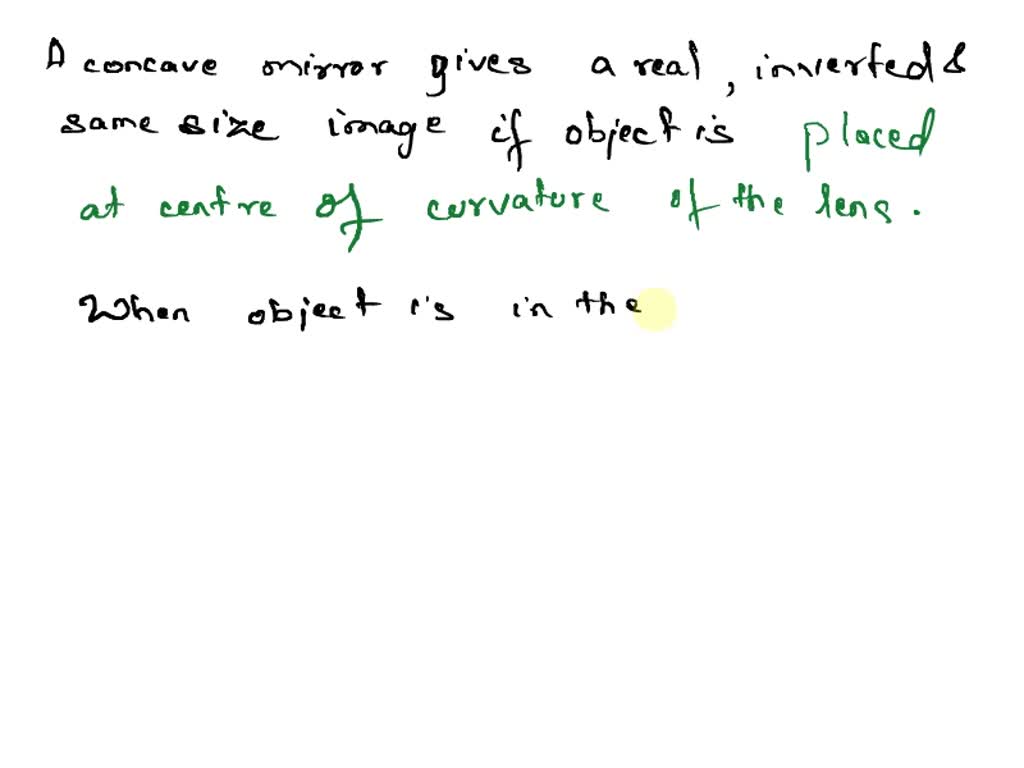 A concave mirror gives a real, inverted &
same size image if object is placed
at centre of curvature of the lens.
When object is in the